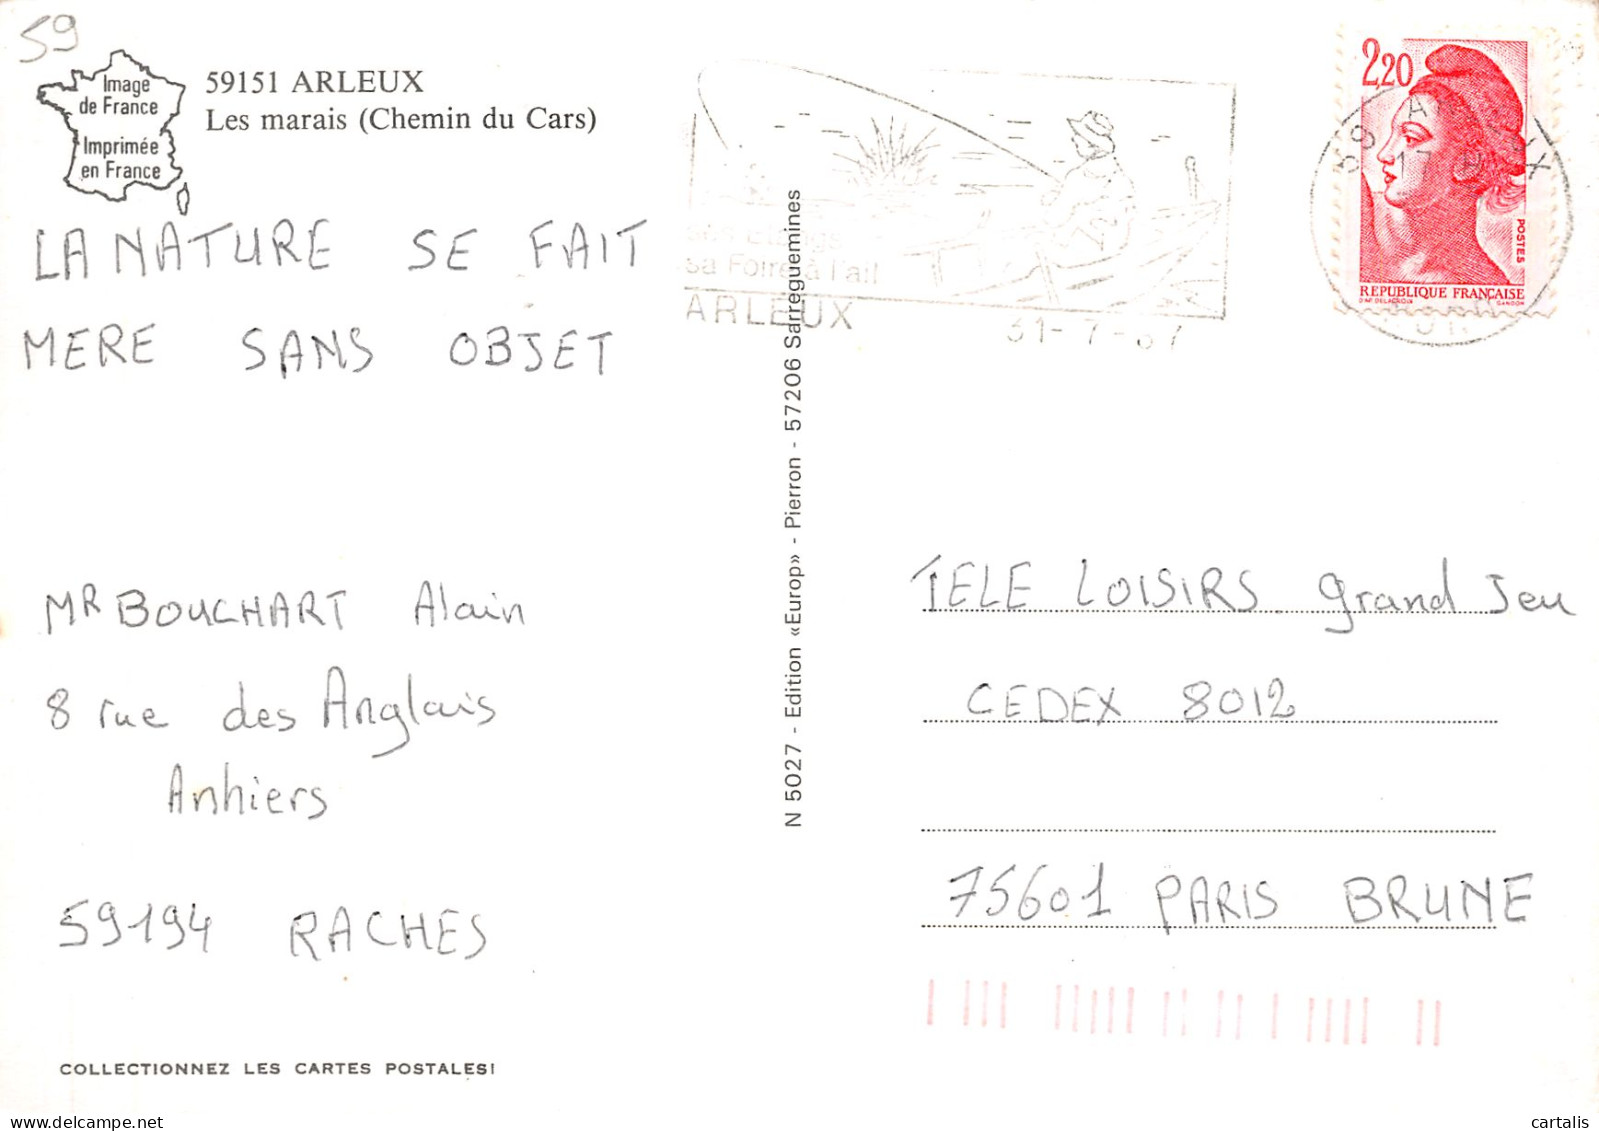 59
Image
de France
Imprimée
en France
59151 ARLEUX
Les marais (Chemin du Cars)
LA NATURE SE FAIT
MERE SANS OBJET
MR BOUCHART Alain
8 rue des Anglais
Anhiers
59194 RACHES
COLLECTIONNEZ LES CARTES POSTALES!
N 5027 - Edition «Europ» - Pierron - 57206 Sarreguemines
ses étangs
sa Foire à l'ail
ARLEUX
31-7-87
2,20
POSTES
REPUBLIQUE FRANÇAISE
D'AP. DELACROIX GANDON
59
17 H
TELE LOISIRS grand Jeu
CEDEX 8012
75601 PARIS BRUNE
delcampe.net
cartalis